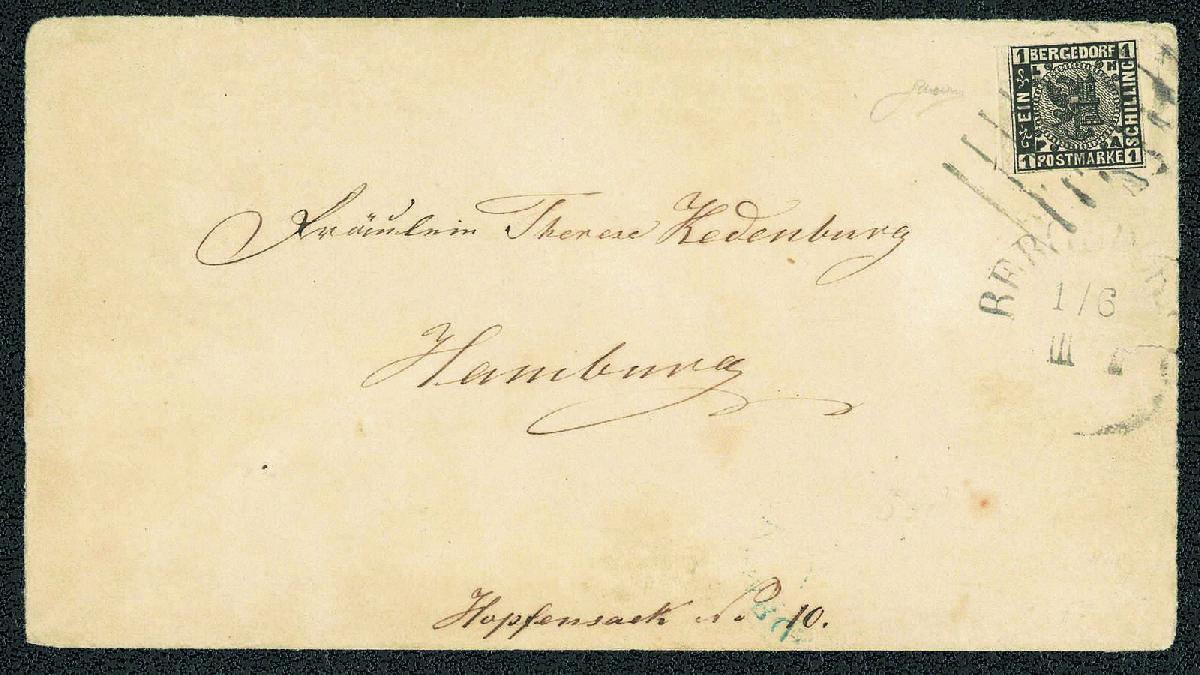 1 BERGEDORF 1
EIN
SCHILLING
L H
P A
1 POSTMARKE 1
Fräulein Therese Kedenburg
1/6
Hamburg
Hopfensack No 10.